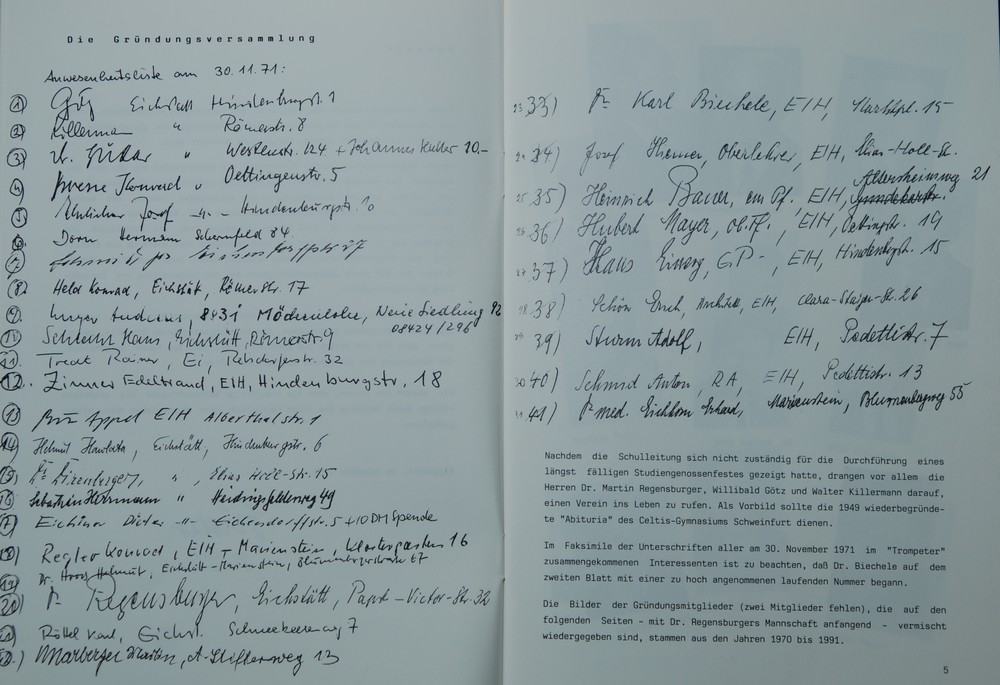 Die Gründungsversammlung
Anwesenheitsliste am 30.11.71:
1) Götz Eichstätt Hindenburgstr. 1
2) Killermann " Römerstr. 8
3) " Westenstr. 124 + Johannes 10,-
4) Konrad " Oettingenstr. 5
5) Josef -"- Hindenburgstr. 10
6. Dorn Hermann Schernfeld 84
7)
8. Held Konrad, Eichstätt, Römerstr. 17
9. Unger Andreas, 8831 Möckenlohe, Neue Siedlung 92
08424/296
10. Hans, Eichstätt, Römerstr. 9
11. Treat Rainer, Ei, Rebdorferstr. 32
12. Zinner Edeltraud, EIH, Hindenburgstr. 18
13 Appel EIH Alberthalstr. 1
14) Helmut Eichstätt, Hindenburgstr. 6
15) Dr. ", Elias Holl-Str. 15
16 Sebastian Hermann " Heidingsfelderweg 49
17) Eichiner Dieter -"- Eichendorffstr. 5 + 10 DM Spende
18) Regler Konrad, EIH - Marienstein, Klostergarten 16
19) Dr. Helmut, Eichstätt-Marienstein, Blumenbergstraße 67
20) Dr. Regensburger, Eichstätt, Papst-Victor-Str. 32
21) Röttel Karl, Eichst. Schneebeerenweg 7
22.) Marberger Martin, A-Stifterweg 13
23 33) Dr. Karl Biechele, EIH, Marktpl. 15
24 34) Josef Hiemer, Oberlehrer, EIH, Elias-Holl-Str.
25 35) Heinrich Bauer, EIH, Aldersheimweg 21
26 36) Hubert Mayer, EIH, Oettingstr. 19
27 37) Hans EIH, Hindenbgstr. 15
28 38) Schön Erich, Architekt, EIH, Clara-Staiger-Str. 26
29 39) Sturm Adolf, EIH, Pedettistr. 7
30 40) Schmid Anton, RA, EIH, Pedettistr. 13
31 41) Dr. med. Eichhorn Erhard, Marienstein, Blumenbergweg 55
Nachdem die Schulleitung sich nicht zuständig für die Durchführung eines
längst fälligen Studiengenossenfestes gezeigt hatte, drangen vor allem die
Herren Dr. Martin Regensburger, Willibald Götz und Walter Killermann darauf,
einen Verein ins Leben zu rufen. Als Vorbild sollte die 1949 wiederbegründe-
te "Abituria" des Celtis-Gymnasiums Schweinfurt dienen.
Im Faksimile der Unterschriften aller am 30. November 1971 im "Trompeter"
zusammengekommenen Interessenten ist zu beachten, daß Dr. Biechele auf dem
zweiten Blatt mit einer zu hoch angenommenen laufenden Nummer begann.
Die Bilder der Gründungsmitglieder (zwei Mitglieder fehlen), die auf den
folgenden Seiten - mit Dr. Regensburgers Mannschaft anfangend - vermischt
wiedergegeben sind, stammen aus den Jahren 1970 bis 1991.
5